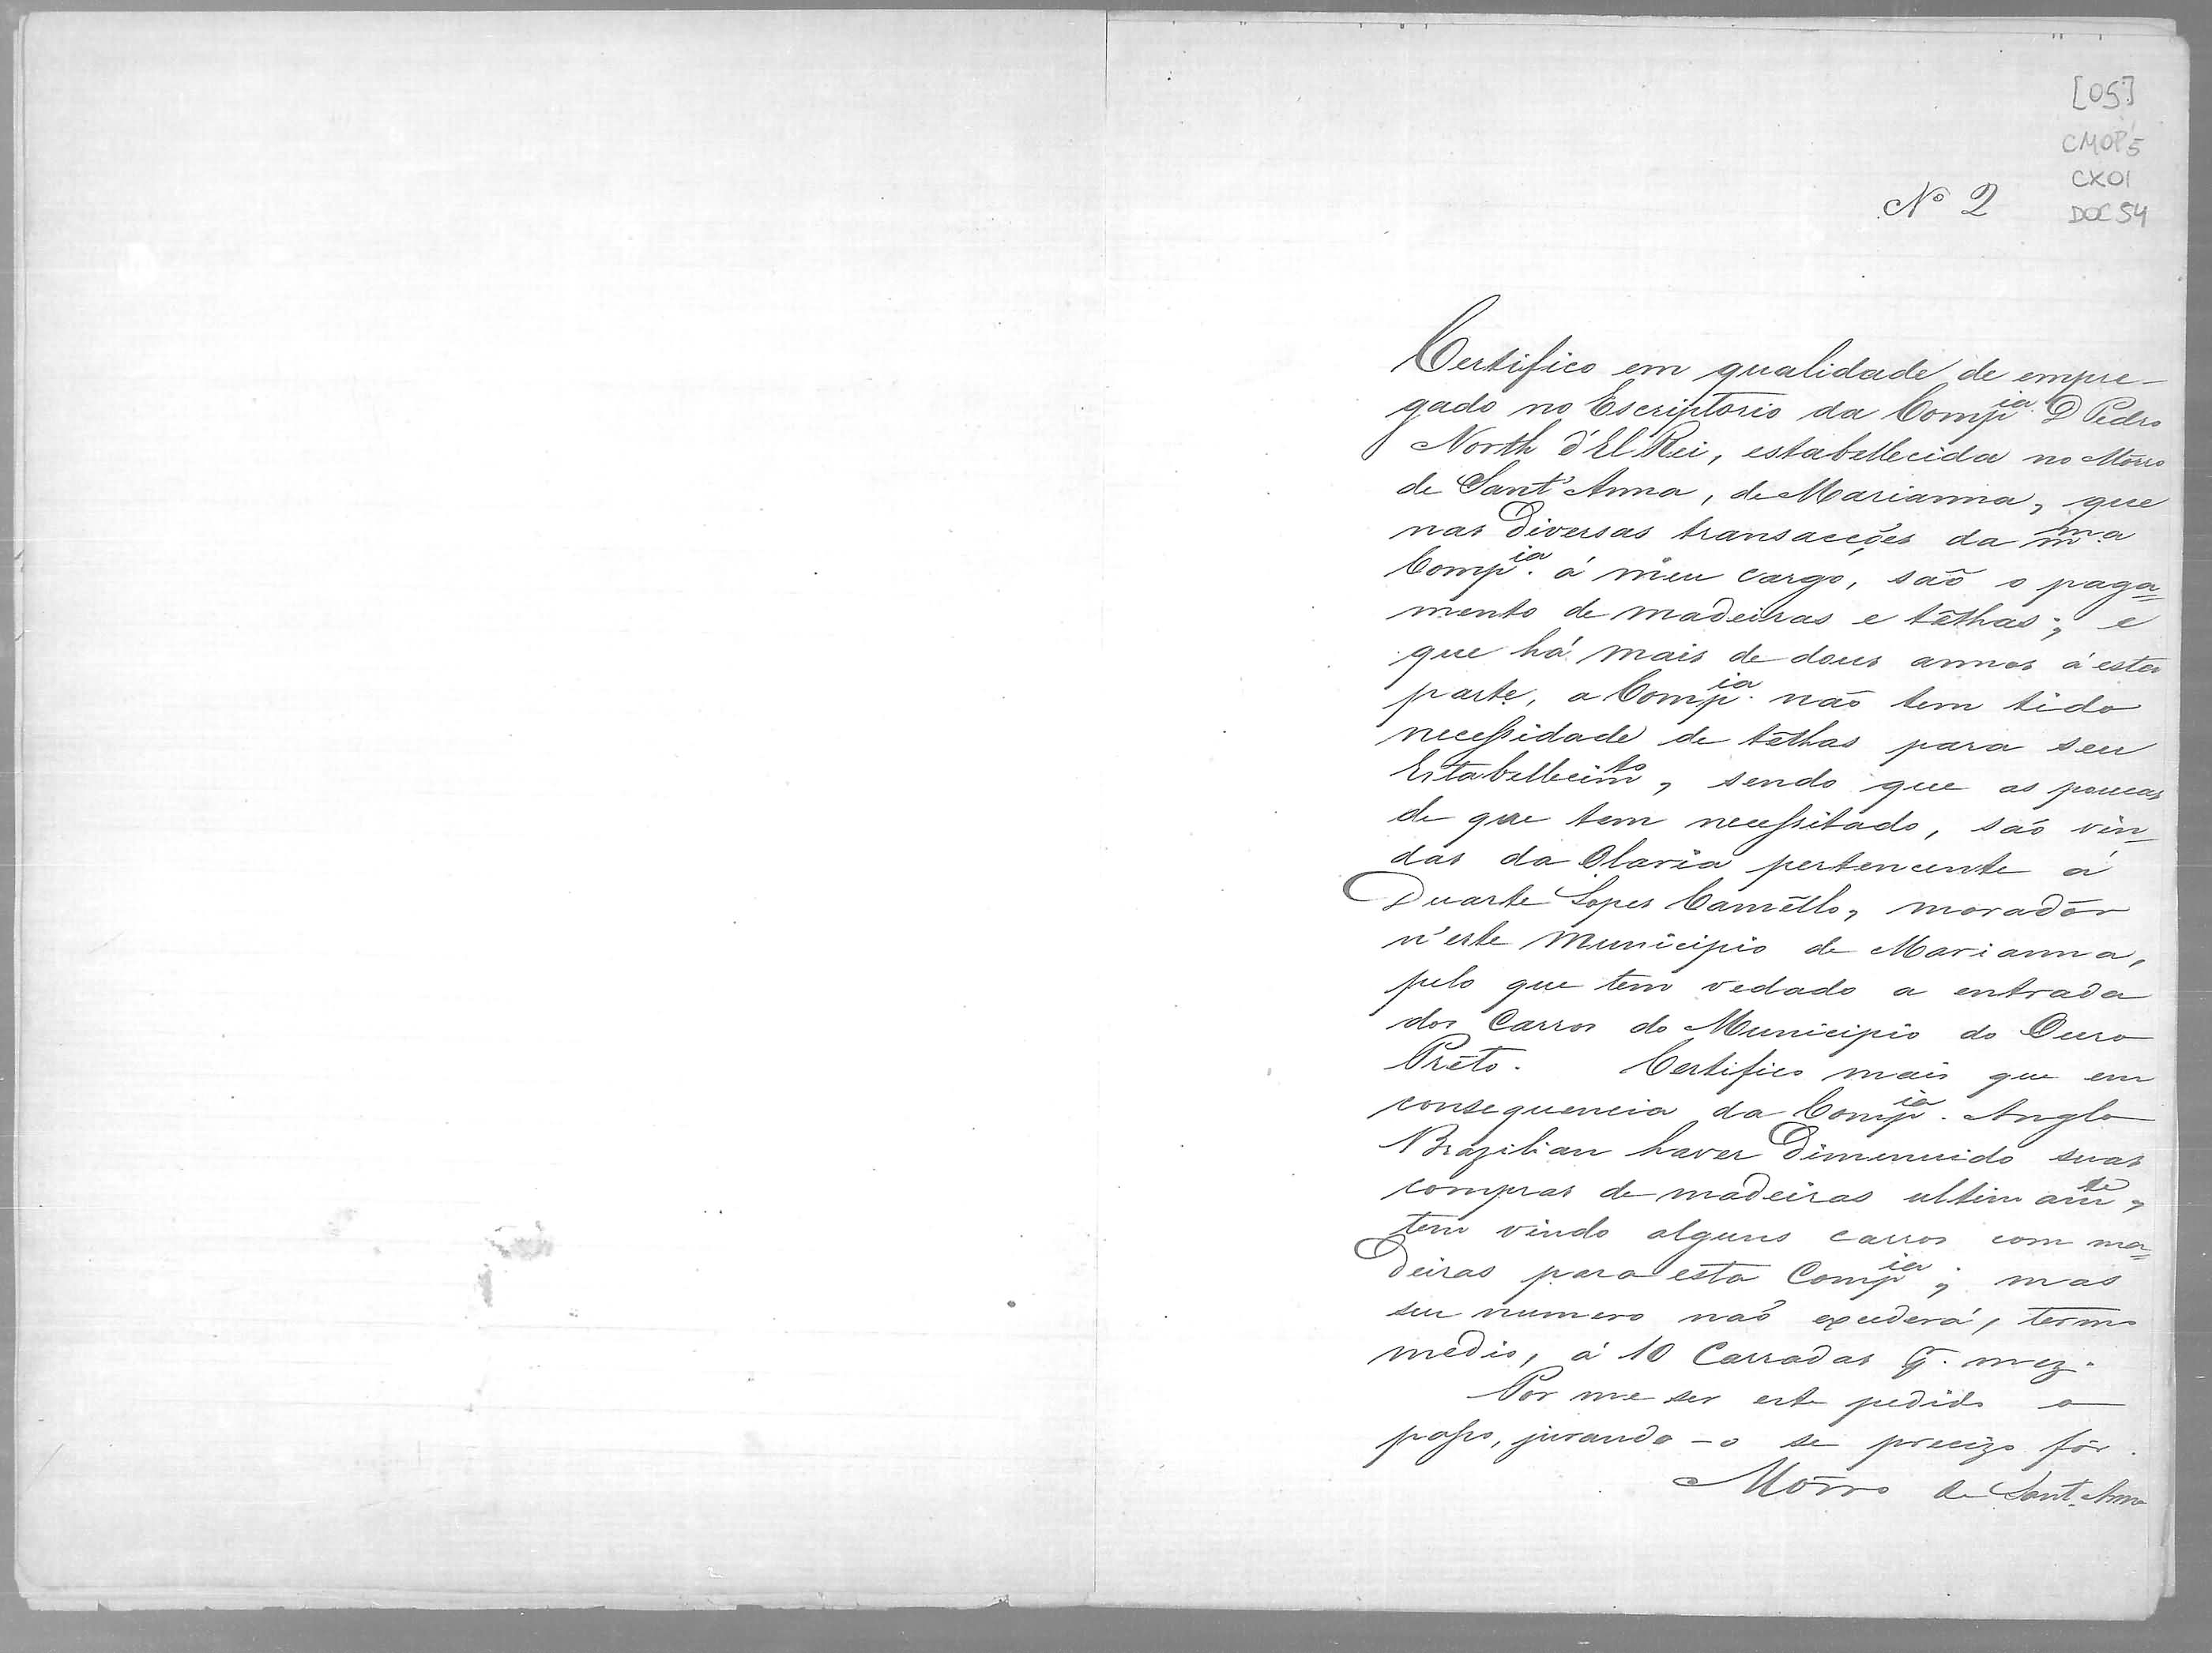 [05]
CMOP'5
CX01
DOC 54
Nº 2
Certifico em qualidade de empre-
gado no Escriptorio da Comp.ia D Pedro
North d'El Rei, estabellecida no Mōrro
de Sant'Anna, de Marianna, que
nas Diversas transacções da m.ma
Comp.ia á meu cargo, saõ o paga=
mento de madeiras e tēlhas; e
que há mais de dous annos á esta
parte, a Comp.ia naõ tem tido
necessidade de tēlhas para seu
Estabellecim.to, sendo que as poucas
de que tem necessitado, saõ vin-
das da Olaria pertencente á
Duarte Lopes Camēllo, moradōr
n'este Municipio de Marianna,
pelo que tem vedado a entrada
dos Carros do Municipio do Ouro
Prēto. Certifico mais que em
consequencia da Comp.ia Anglo
Brazilian haver Dimenuido suas
compras de madeiras ultimam.te,
tem vindo alguns carros com ma=
deiras para esta Comp.ia; mas
seu numero naõ exederá, termo
medio, á 10 Carradas p̄. mez.
Por me ser este pedido o
passo, jurando-o se precizo fōr.
Mōrro de Sant'Anna